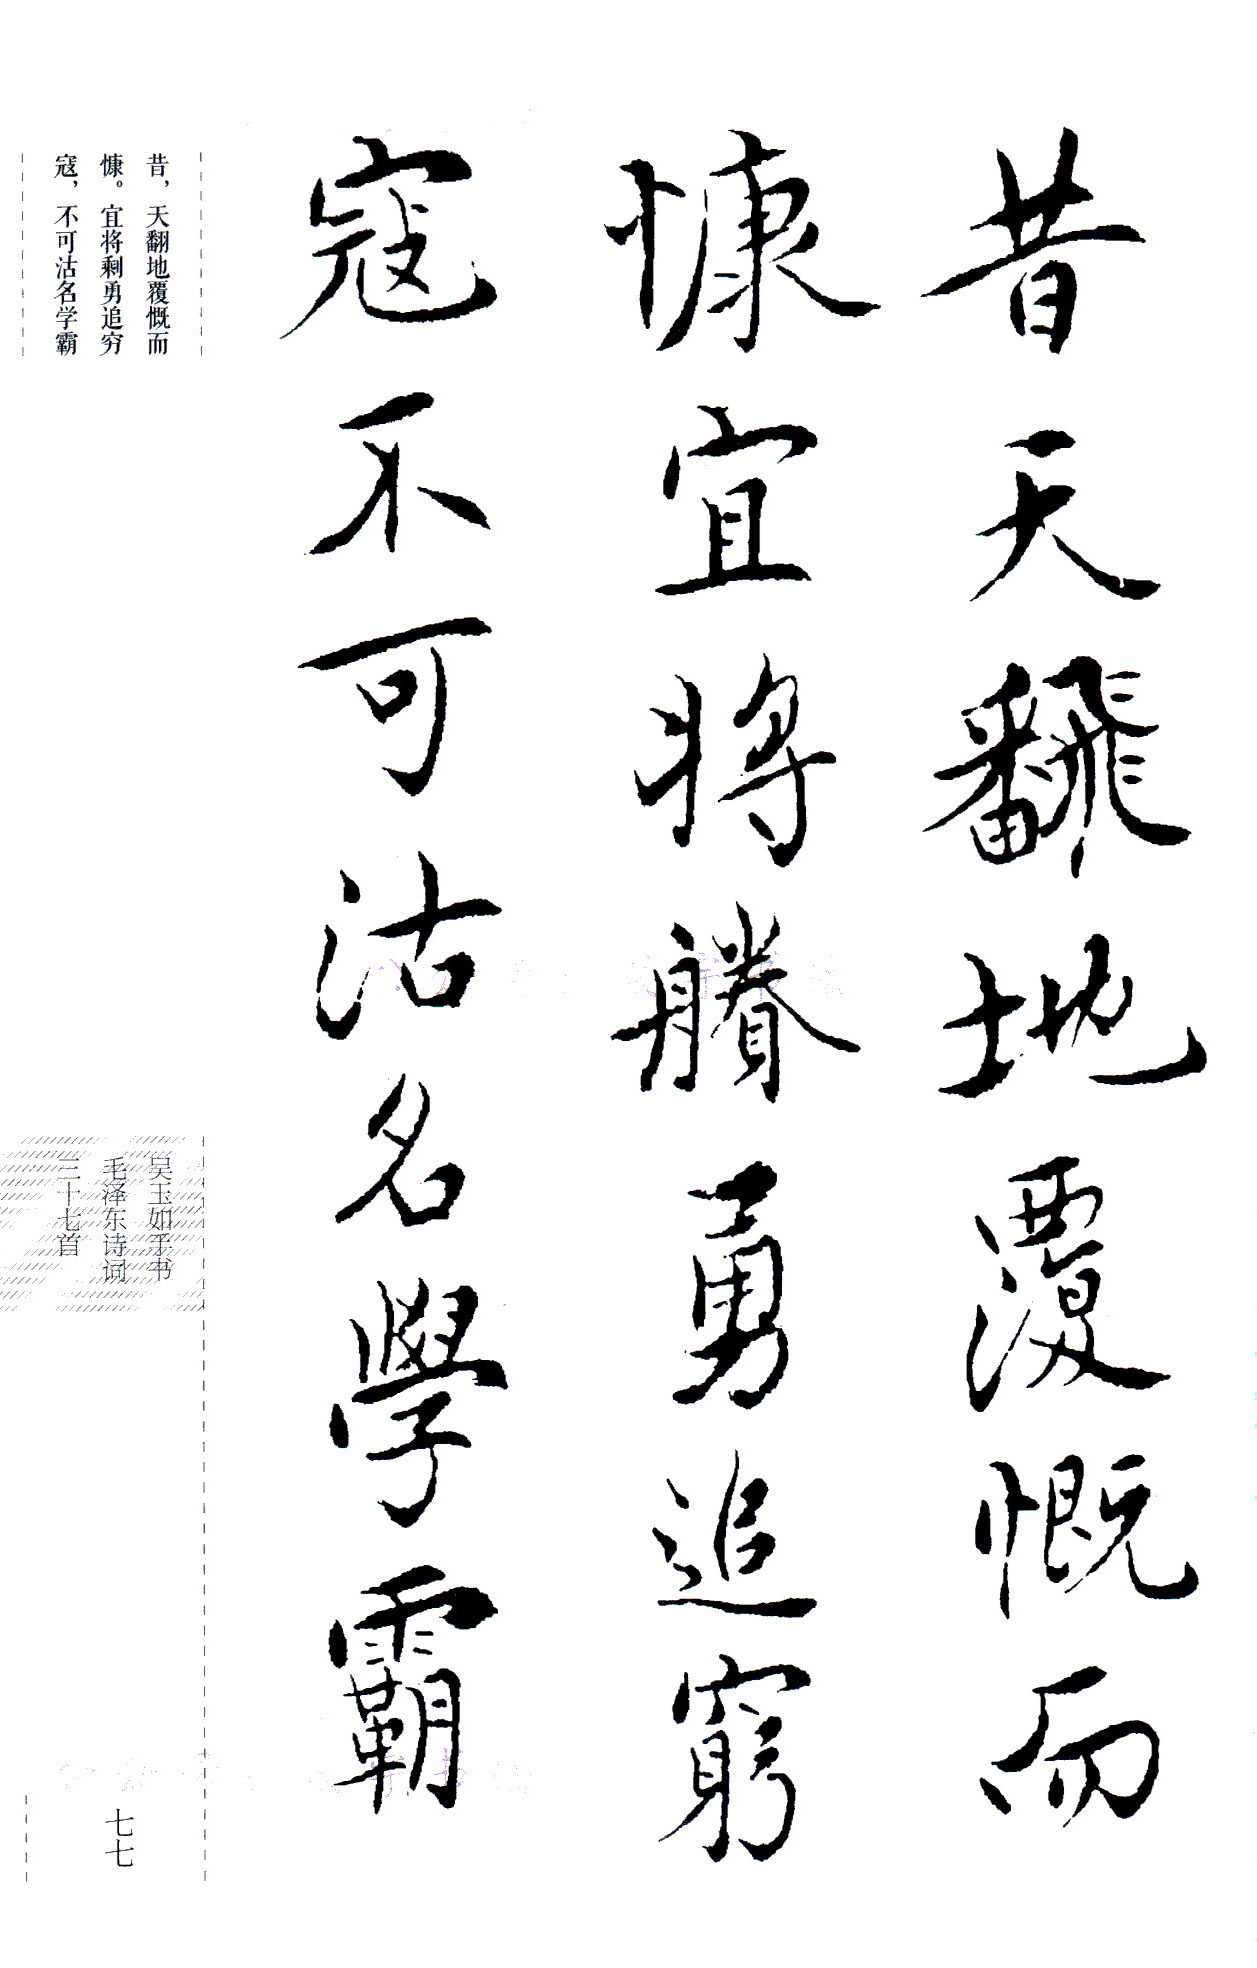 昔天飜地覆慨而
慷宜将賸勇追窮
寇不可沽名學霸
昔，天翻地覆慨而
慷。宜将剩勇追穷
寇，不可沽名学霸
吴玉如手书
毛泽东诗词
三十七首
七七